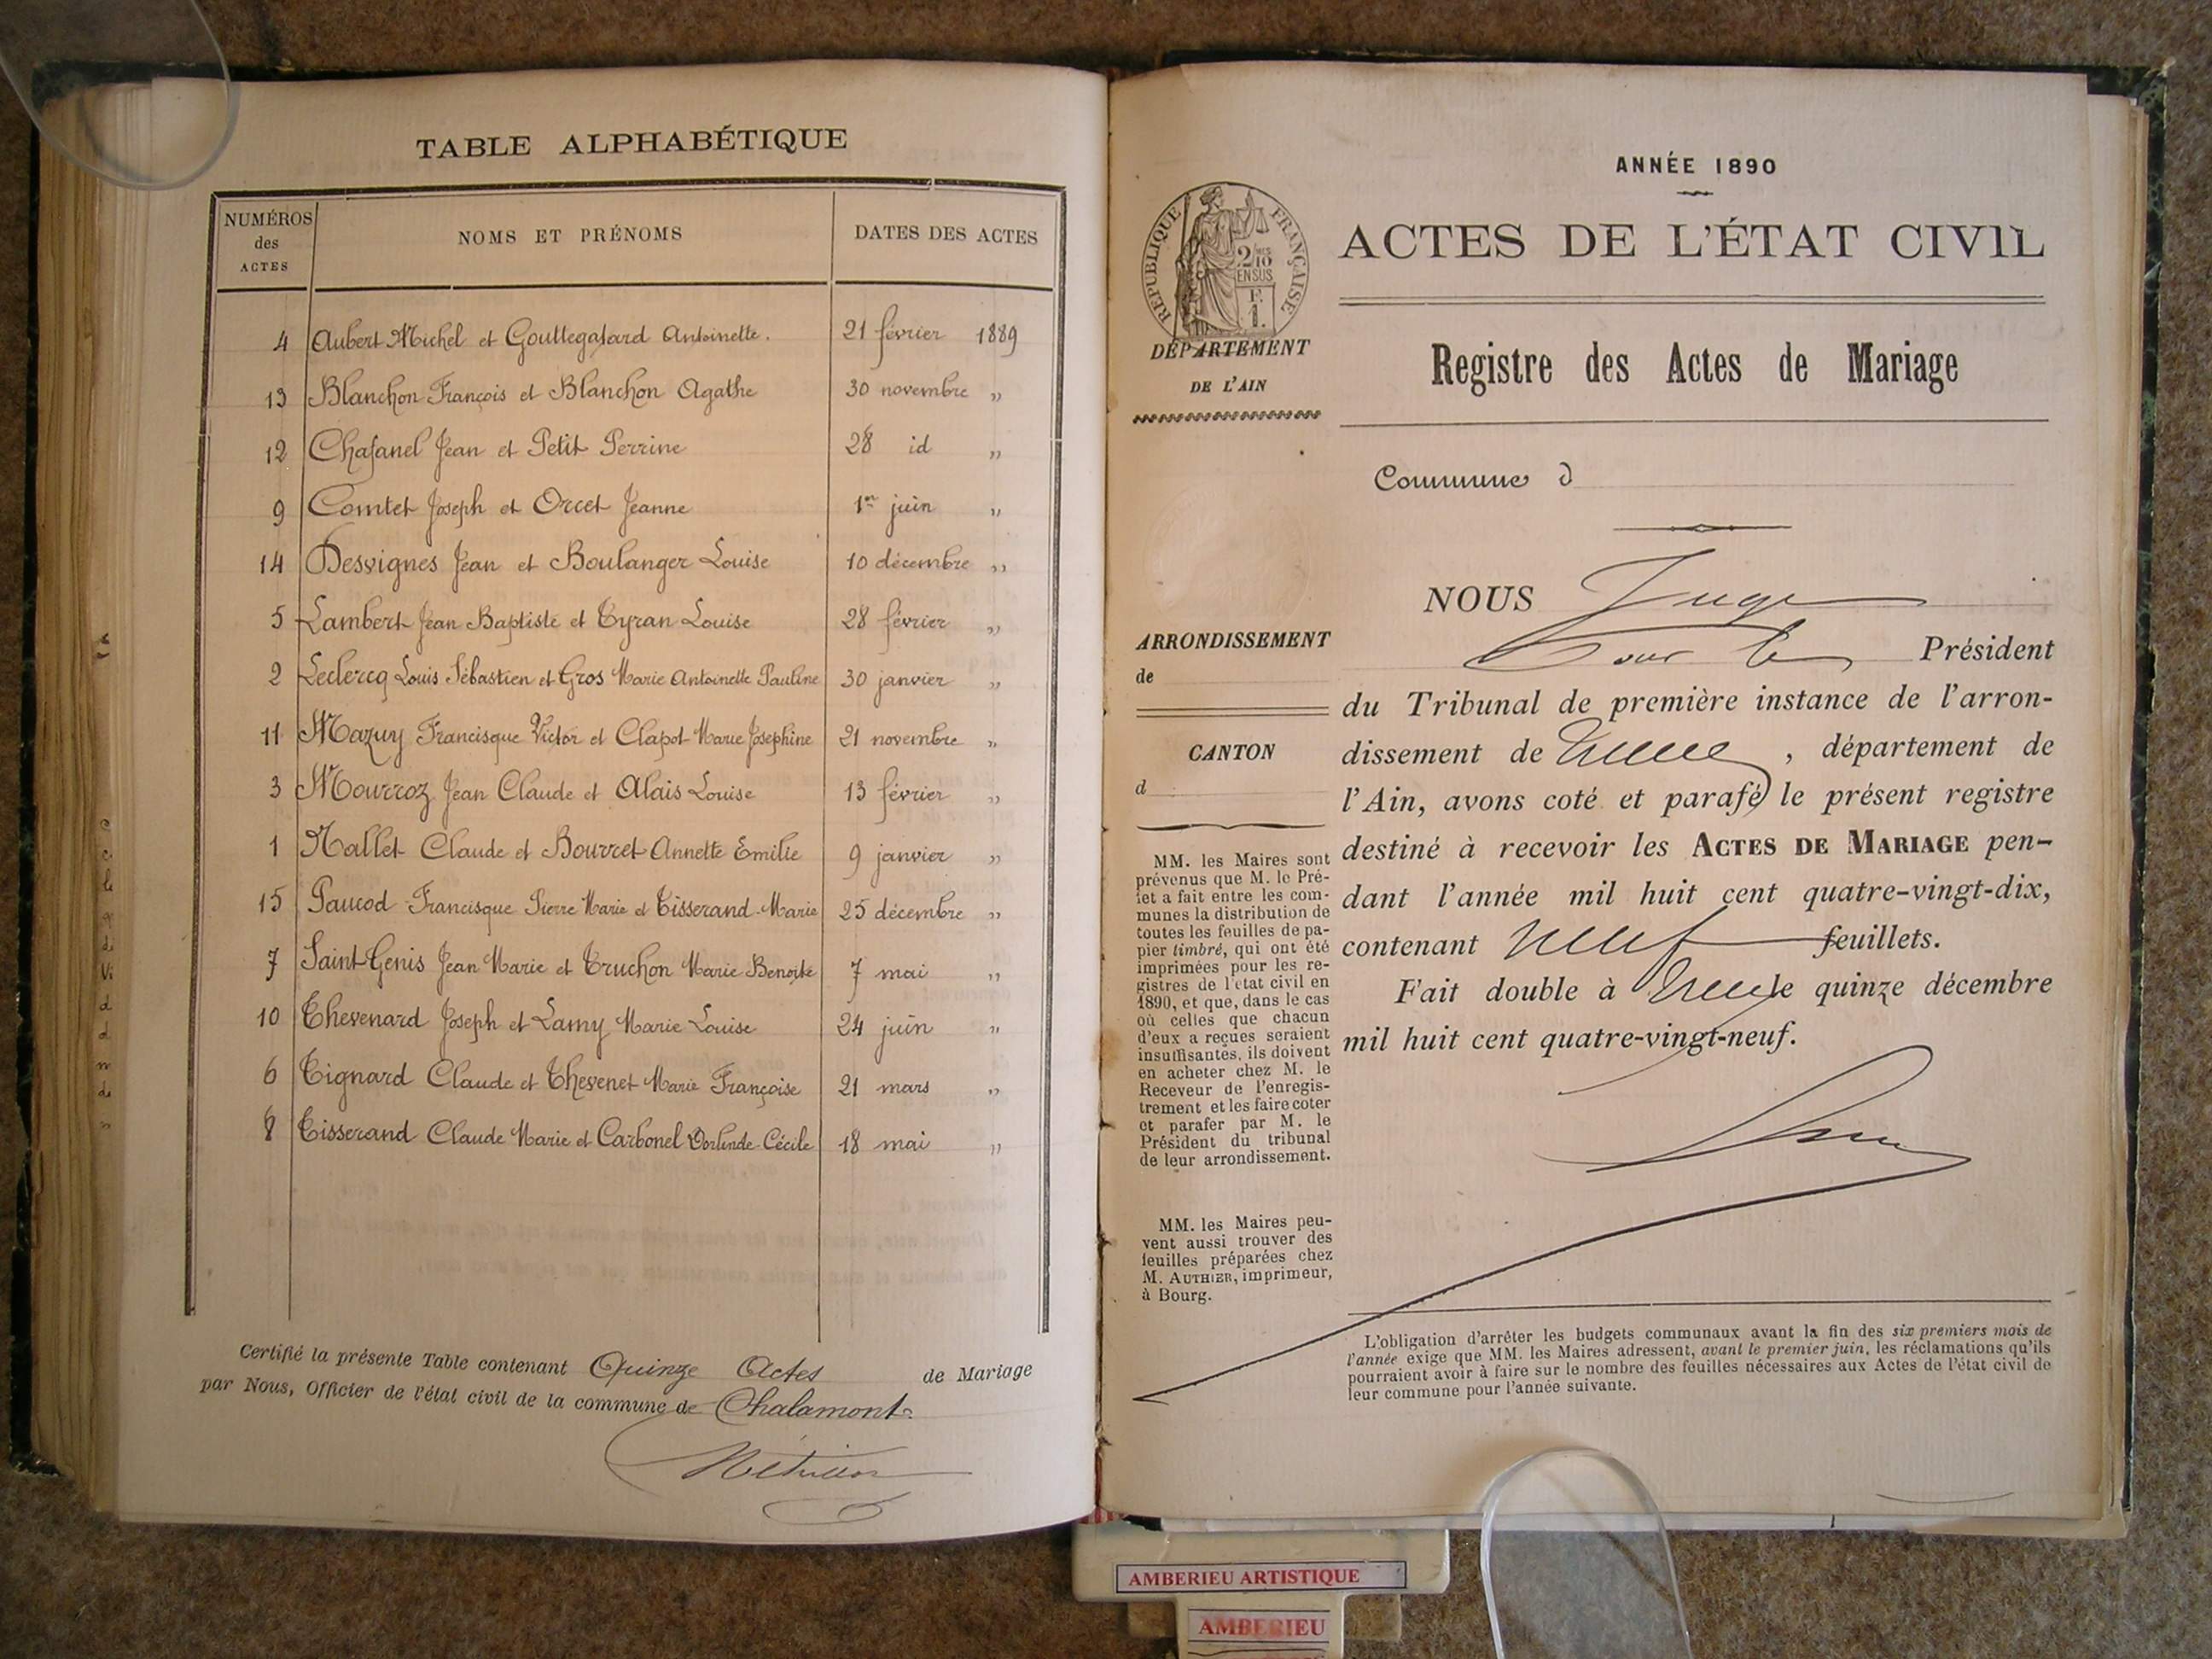 TABLE ALPHABÉTIQUE
NUMÉROS des ACTES
NOMS ET PRÉNOMS
DATES DES ACTES
4 Aubert Michel et Gouttegatard Antoinette. 21 février 1889
13 Blanchon François et Blanchon Agathe 30 novembre "
12 Chafanel Jean et Petit Perrine 28 id "
9 Comtet Joseph et Orcet Jeanne 1er juin "
14 Desvignes Jean et Boulanger Louise 10 décembre "
5 Lambert Jean Baptiste et Tyran Louise 28 février "
2 Leclercq Louis Sébastien et Gros Marie Antoinette Pauline 30 janvier "
11 Mazuy Francisque Victor et Clapot Marie Josephine 21 novembre "
3 Mourroz Jean Claude et Alais Louise 13 février "
1 Nallet Claude et Bouvret Annette Emilie 9 janvier "
15 Paucod Francisque Pierre Marie et Tisserand Marie 25 décembre "
7 Saint Genis Jean Marie et Truchon Marie Benoite 7 mai "
10 Thevenard Joseph et Lamy Marie Louise 24 juin "
6 Tignard Claude et Thevenet Marie Françoise 21 mars "
8 Tisserand Claude Marie et Carbonel Dorlinde Cécile 18 mai "
Certifié la présente Table contenant Quinze Actes de Mariage
par Nous, Officier de l'état civil de la commune de Chalamont
ANNÉE 1890
ACTES DE L'ÉTAT CIVIL
Registre des Actes de Mariage
Commune d
NOUS Juge
Pour le Président
du Tribunal de première instance de l'arron-
dissement de Trévoux, département de
l'Ain, avons coté et parafé le présent registre
destiné à recevoir les ACTES DE MARIAGE pen-
dant l'année mil huit cent quatre-vingt-dix,
contenant neuf feuillets.
Fait double à Trévoux le quinze décembre
mil huit cent quatre-vingt-neuf.
RÉPUBLIQUE FRANÇAISE
2/10
EN SUS
F.
1.
DÉPARTEMENT
DE L'AIN
ARRONDISSEMENT
de
CANTON
d
MM. les Maires sont
prévenus que M. le Pré-
fet a fait entre les com-
munes la distribution de
toutes les feuilles de pa-
pier timbré, qui ont été
imprimées pour les re-
gistres de l'état civil en
1890, et que, dans le cas
où celles que chacun
d'eux a reçues seraient
insuffisantes, ils doivent
en acheter chez M. le
Receveur de l'enregis-
trement et les faire coter
et parafer par M. le
Président du tribunal
de leur arrondissement.
MM. les Maires peu-
vent aussi trouver des
feuilles préparées chez
M. AUTHIER, imprimeur,
à Bourg.
L'obligation d'arrêter les budgets communaux avant la fin des six premiers mois de
l'année exige que MM. les Maires adressent, avant le premier juin, les réclamations qu'ils
pourraient avoir à faire sur le nombre des feuilles nécessaires aux Actes de l'état civil de
leur commune pour l'année suivante.
AMBERIEU ARTISTIQUE
AMBERIEU